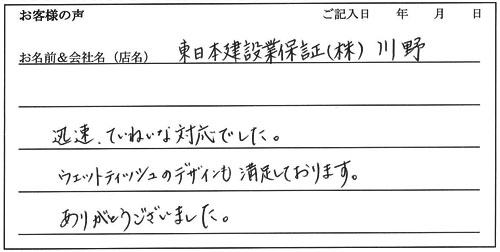 お客様の声 ご記入日 年 月 日
お名前&会社名（店名） 東日本建設業保証(株) 川野
迅速、ていねいな対応でした。
ウェットティッシュのデザインも満足しております。
ありがとうございました。